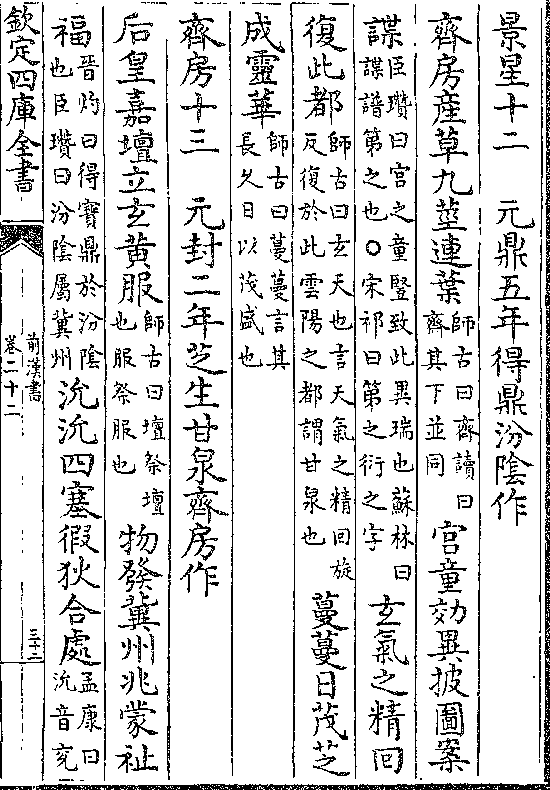 景星十二 元鼎五年得鼎汾陰作
齊房產草九莖連葉師古曰齊讀曰齋其下並同宮童効異披圖案
諜臣瓚曰宮之童豎致此異瑞也蘇林曰諜譜第之也○宋祁曰第之衍之字玄氣之精回
復此都師古曰玄天也言天氣之精回旋反復於此雲陽之都謂甘泉也蔓蔓日茂芝
成靈華師古曰蔓蔓言其長久日以茂盛也
齊房十三 元封二年芝生甘泉齊房作
后皇嘉壇立玄黃服師古曰壇祭壇也服祭服也物發冀州兆蒙祉
福晉灼曰得寶鼎於汾陰也臣瓚曰汾陰屬冀州沇沇四塞徦狄合處孟康曰沇音兖
欽定四庫全書
前漢書
卷二十二
三十二